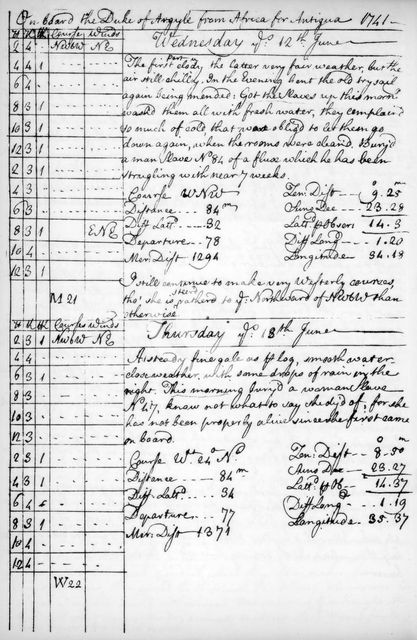 On board the Duke of Argyle from Africa for Antigua 1741
H K H Courses Winds
Wednesday ye. 12th June
2 4 NWbW NE
The first Part clody, the latter very fair weather, but the
4 4 1
air still chilly. In the Evening bent the old try sail
6 4
again being mended: Got the Slaves up this morng.
8 3 1
washd them all with fresh water, they complaind
10 3 1
so much of cold, that was oblig'd to let them go
12 3 1
down again, when the rooms were cleand. Bury'd
2 3 1
a man Slave No. 84 of a flux which he has been
strugling with near 7 weeks.
4 3
Course WNW Zen: Dist 9.25
6 3
Distance --- 84m Suns Dec -- 23.28
8 3 1 ENE
Diff Latd. --- 32 Latd. pr Observ 14.3
10 4
Departure --- 78 Diff Long --- 1.20
12 3 1
Mer: Dist 1294 Longitude -- 34.18
I still continue to make very Westerly courses,
M 21
tho' she is steerd rather to ye. Northward of NWbW than
otherwise
H K H Courses Winds
Thursday ye. 13th June
2 3 1 NWbW NE
4 4
A steady fine gale as pr log, smooth water
6 3 1
close weather, with some drops of rain in the
8 3
night. This morning bury'd a woman slave
10 3
No. 47, know not what to say she dy'd of, for she
has not been properly alive since she first came
12 3
on board.
2 3 1
Course Wt. 24° No. Zen: Dist -- 8.50
4 3 1
Distance --- 84m Suns Dec -- 23.27
6 4
Diff: Latd. --- 34 Latd. pr Ob -- 14.37
8 3 1
Departure --- 77 Diff Long -- 1.19
10 4
Mer: Dist 1371 Longitude - 35.37
12 4
W22